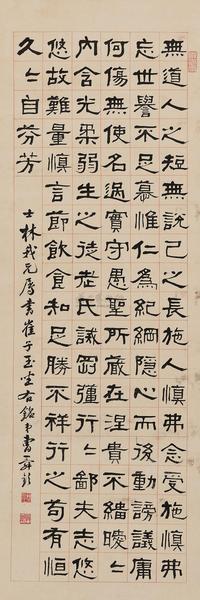 無道人之短無說己之長施人慎弗念受施慎弗
忘世譽不足慕惟仁為紀綱隱心而後動謗議庸
何傷無使名過實守愚聖所臧在涅貴不緇曖〻
內含光柔弱生之徒老氏誡罡彊行〻鄙夫志悠
悠故難量慎言節飲食知足勝不祥行之苟有恒
久〻自芬芳
士林我兄屬書崔子玉坐右銘弟曹